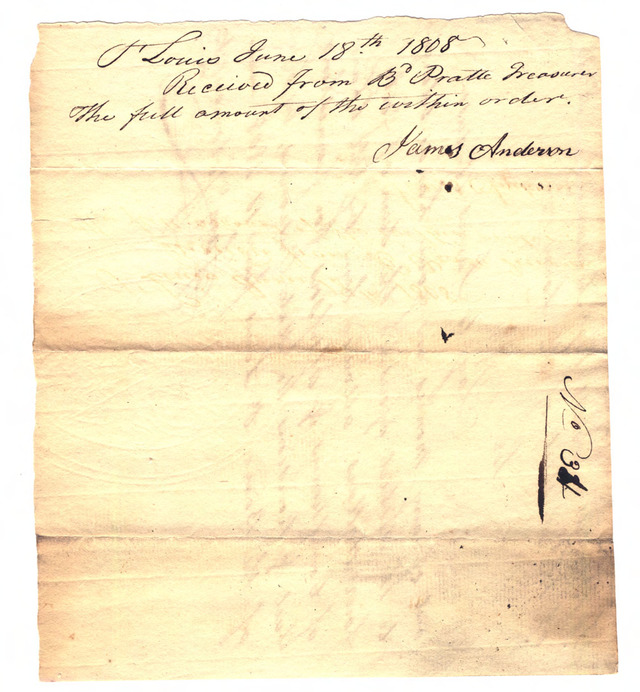 St Louis June 18th 1808
Received from Bd Pratte Treasurer
The full amount of the within order.
James Anderson
No 34